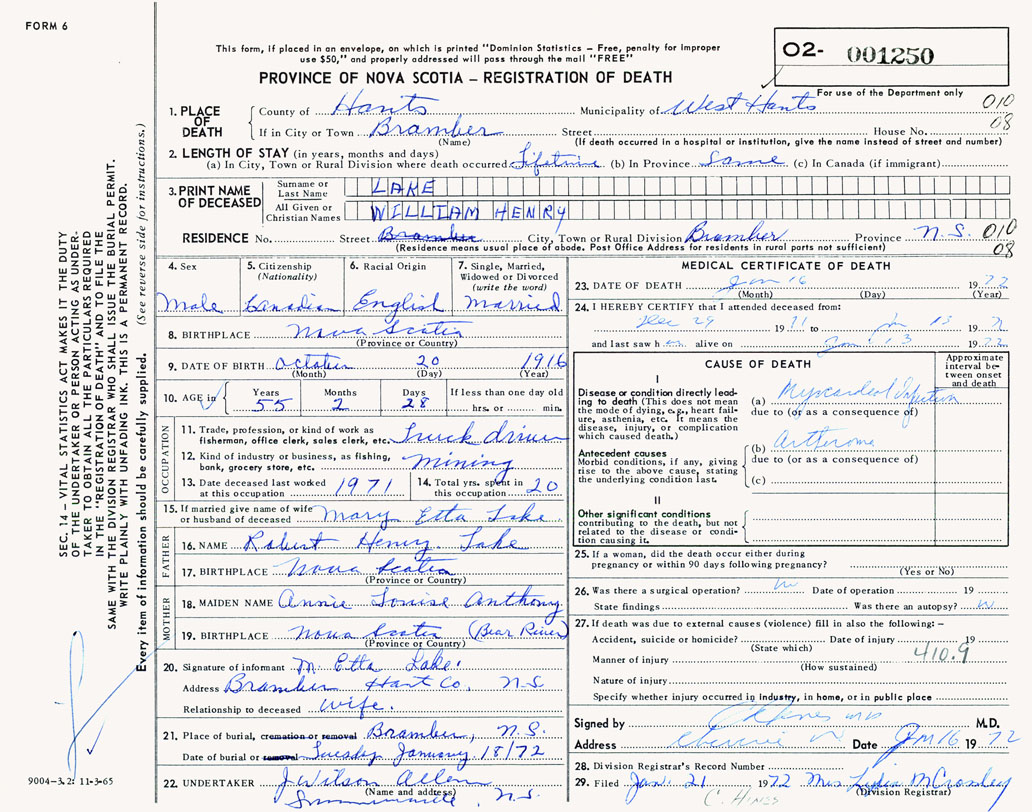 FORM 6
This form, if placed in an envelope, on which is printed "Dominion Statistics — Free, penalty for improper
use $50," and properly addressed will pass through the mail "FREE"
PROVINCE OF NOVA SCOTIA — REGISTRATION OF DEATH
O2- 001250
For use of the Department only
010
08
1. PLACE OF DEATH
County of Hants Municipality of West Hants
If in City or Town Bramber Street House No.
(Name) (If death occurred in a hospital or institution, give the name instead of street and number)
2. LENGTH OF STAY (in years, months and days)
(a) In City, Town or Rural Division where death occurred Lifetime (b) In Province Same (c) In Canada (if immigrant)
3. PRINT NAME OF DECEASED
Surname or Last Name LAKE
All Given or Christian Names WILLIAM HENRY
RESIDENCE No. Street Bramber City, Town or Rural Division Bramber Province N.S. 010
(Residence means usual place of abode. Post Office Address for residents in rural parts not sufficient) 08
4. Sex Male
5. Citizenship (Nationality) Canadian
6. Racial Origin English
7. Single, Married, Widowed or Divorced (write the word) Married
8. BIRTHPLACE Nova Scotia
(Province or Country)
9. DATE OF BIRTH October 20 1916
(Month) (Day) (Year)
10. AGE in Years 55 Months 2 Days 28 If less than one day old hrs. or min.
OCCUPATION
11. Trade, profession, or kind of work as fisherman, office clerk, sales clerk, etc. Truck driver
12. Kind of industry or business, as fishing, bank, grocery store, etc. mining
13. Date deceased last worked at this occupation 1971
14. Total yrs. spent in this occupation 20
15. If married give name of wife or husband of deceased Mary Etta Lake
FATHER
16. NAME Robert Henry Lake
17. BIRTHPLACE Nova Scotia
(Province or Country)
MOTHER
18. MAIDEN NAME Annie Louise Anthony
19. BIRTHPLACE Nova Scotia (Bear River)
(Province or Country)
20. Signature of informant M. Etta Lake.
Address Bramber Hant Co, N-S
Relationship to deceased wife.
21. Place of burial, cremation or removal Bramber, N.S.
Date of burial or removal Tuesday January 18/72
22. UNDERTAKER J Wilson Allen
(Name and address)
N.S.
MEDICAL CERTIFICATE OF DEATH
23. DATE OF DEATH Jan 16 1972
(Month) (Day) (Year)
24. I HEREBY CERTIFY that I attended deceased from:
Dec 29 1971 to Jan 13 197
and last saw h alive on Jan 13 1972
CAUSE OF DEATH
Approximate interval between onset and death
I
Disease or condition directly leading to death (This does not mean the mode of dying, e.g., heart failure, asthenia, etc. It means the disease, injury, or complication which caused death.)
(a) Myocardial Infarction
due to (or as a consequence of)
Antecedent causes
Morbid conditions, if any, giving rise to the above cause, stating the underlying condition last.
(b)
due to (or as a consequence of)
(c)
II
Other significant conditions
contributing to the death, but not related to the disease or condition causing it.
25. If a woman, did the death occur either during pregnancy or within 90 days following pregnancy?
(Yes or No)
26. Was there a surgical operation? Date of operation 19
State findings Was there an autopsy?
27. If death was due to external causes (violence) fill in also the following: —
Accident, suicide or homicide? Date of injury 19
(State which)
410.9
Manner of injury
(How sustained)
Nature of injury
Specify whether injury occurred in industry, in home, or in public place
Signed by M.D.
Address Date Jan 16 1972
28. Division Registrar's Record Number
29. Filed Jan. 21 1972 Mrs Lydia McCrossley
(Division Registrar)
C. HINES
SEC. 14 — VITAL STATISTICS ACT MAKES IT THE DUTY
OF THE UNDERTAKER OR PERSON ACTING AS UNDER-
TAKER TO OBTAIN ALL THE PARTICULARS REQUIRED
IN THE "REGISTRATION OF DEATH" AND TO FILE THE
SAME WITH THE DIVISION REGISTRAR WHO SHALL ISSUE THE BURIAL PERMIT.
WRITE PLAINLY WITH UNFADING INK. THIS IS A PERMANENT RECORD.
Every item of information should be carefully supplied. (See reverse side for instructions.)
9004-3.2: 11-3-65